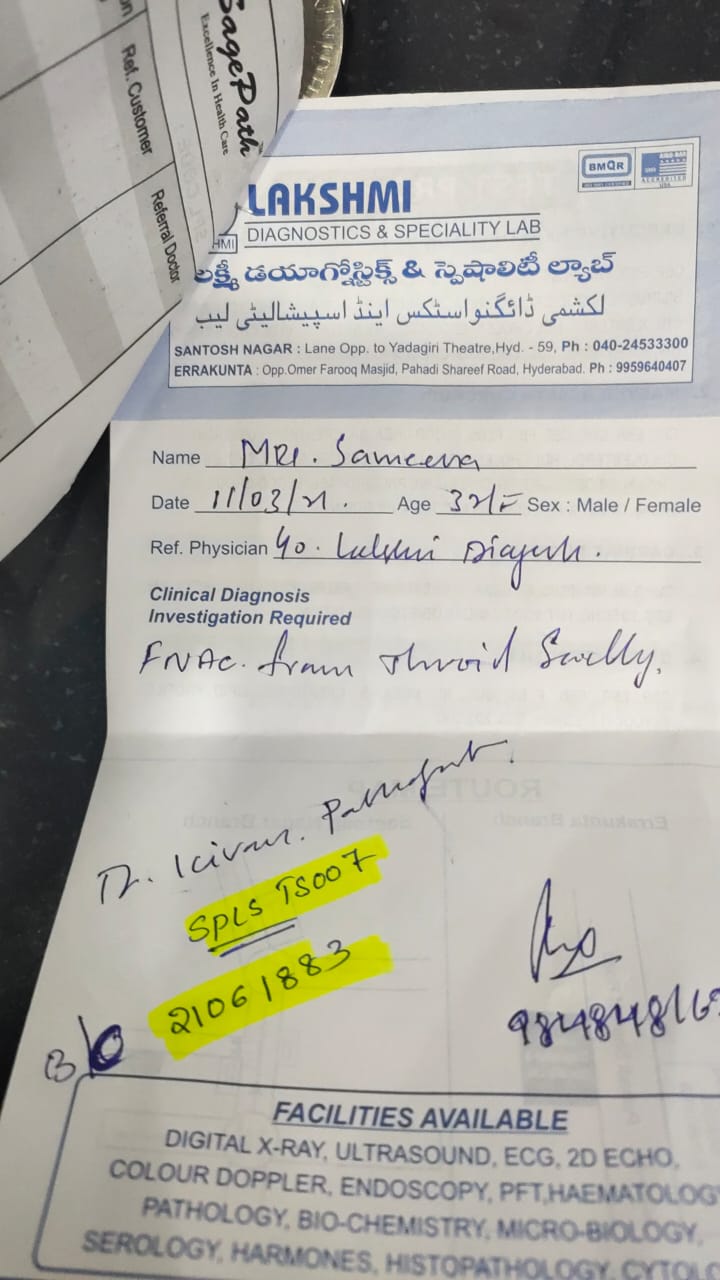 SagePath
Excellence In Health Care
Ref. Customer
Referral Doctor
BMQR
LAKSHMI
HMI
DIAGNOSTICS & SPECIALITY LAB
లక్ష్మీ డయాగ్నోస్టిక్స్ & స్పెషాలిటీ ల్యాబ్
لکشمی ڈائگنواسٹکس اینڈ اسپیشالیٹی لیب
SANTOSH NAGAR : Lane Opp. to Yadagiri Theatre,Hyd. - 59, Ph : 040-24533300
ERRAKUNTA : Opp.Omer Farooq Masjid, Pahadi Shareef Road, Hyderabad. Ph : 9959640407
Name Mrs. Sameena
Date 11/03/21. Age 32/F Sex : Male / Female
Ref. Physician
Clinical Diagnosis
Investigation Required
FNAC. from
Dr. Kiran.
SPLS TS007
21061883
FACILITIES AVAILABLE
DIGITAL X-RAY, ULTRASOUND, ECG, 2D ECHO,
COLOUR DOPPLER, ENDOSCOPY, PFT,HAEMATOLOG
PATHOLOGY, BIO-CHEMISTRY, MICRO-BIOLOGY,
SEROLOGY, HARMONES, HISTOPATHOLOGY, CYTOLO